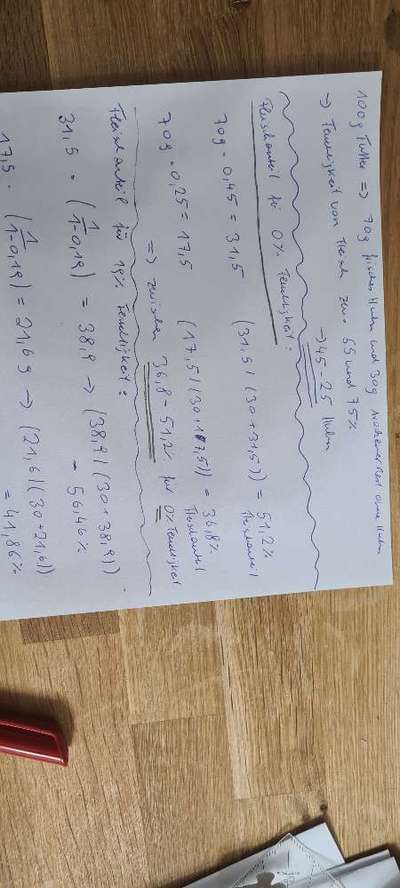 100g Futter => 70g frisches Huhn und 30g Trockenanteil ohne Huhn
=> Feuchtigkeit von Fleisch zw. 55 und 75%
→ 45-25 Huhn
Fleischanteil für 0% Feuchtigkeit:
70g · 0,45 = 31,5 (31,5/(30+31,5)) = 51,2%
Fleischanteil
70g · 0,25 = 17,5 (17,5/(30+17,5)) = 36,8%
Fleischanteil
=> zwischen 36,8-51,2% für 0% Feuchtigkeit
Fleischanteil für 19% Feuchtigkeit:
31,5 · (1/1-0,19) = 38,9 → (38,9/(30+38,9))
= 56,46%
17,5 · (1/1-0,19) = 21,6g → (21,6/(30+21,6))
= 41,86%